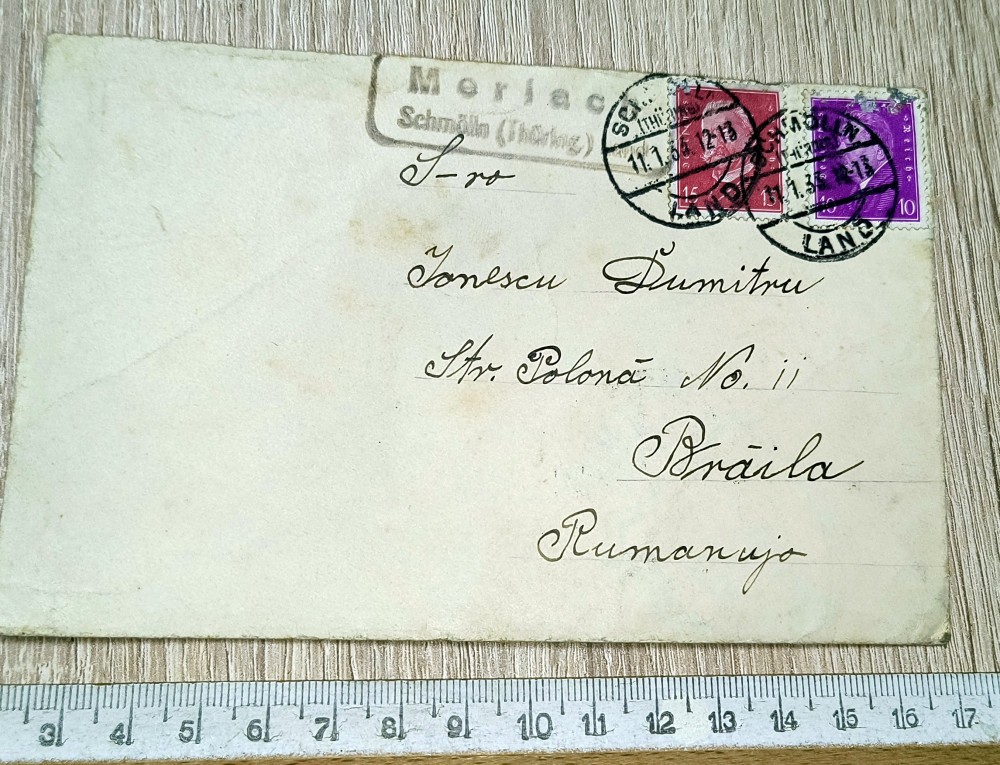 Merlac
Schmölln (Thüring.)
SCHMÖLLN
(THÜRING)
11.1.33.12-13
LAND
11.1.33.12-13
LAND
15 15
Reich
10 10
S-ro
Ionescu Dumitru
Str. Polonă No. 11
Brăila
Rumanujo
3 4 5 6 7 8 9 10 11 12 13 14 15 16 17